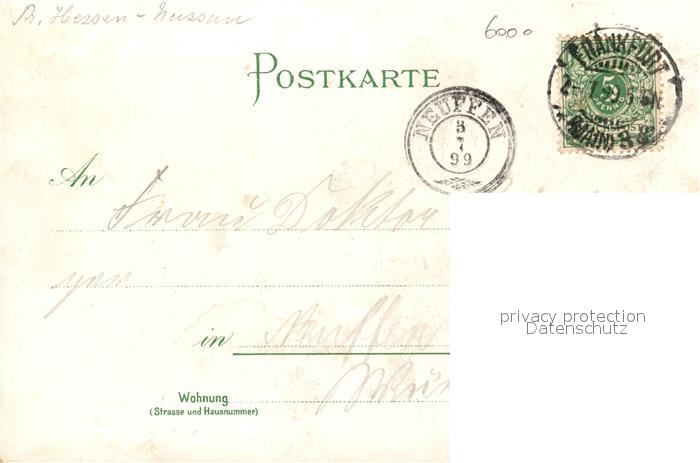 Pr. Hessen-Nassau
6000
POSTKARTE
FRANKFURT
5
PFENNIG
NEUFFEN
3
7
99
An
Frau Doktor
in Neuffen
Wohnung
(Strasse und Hausnummer)
privacy protection
Datenschutz